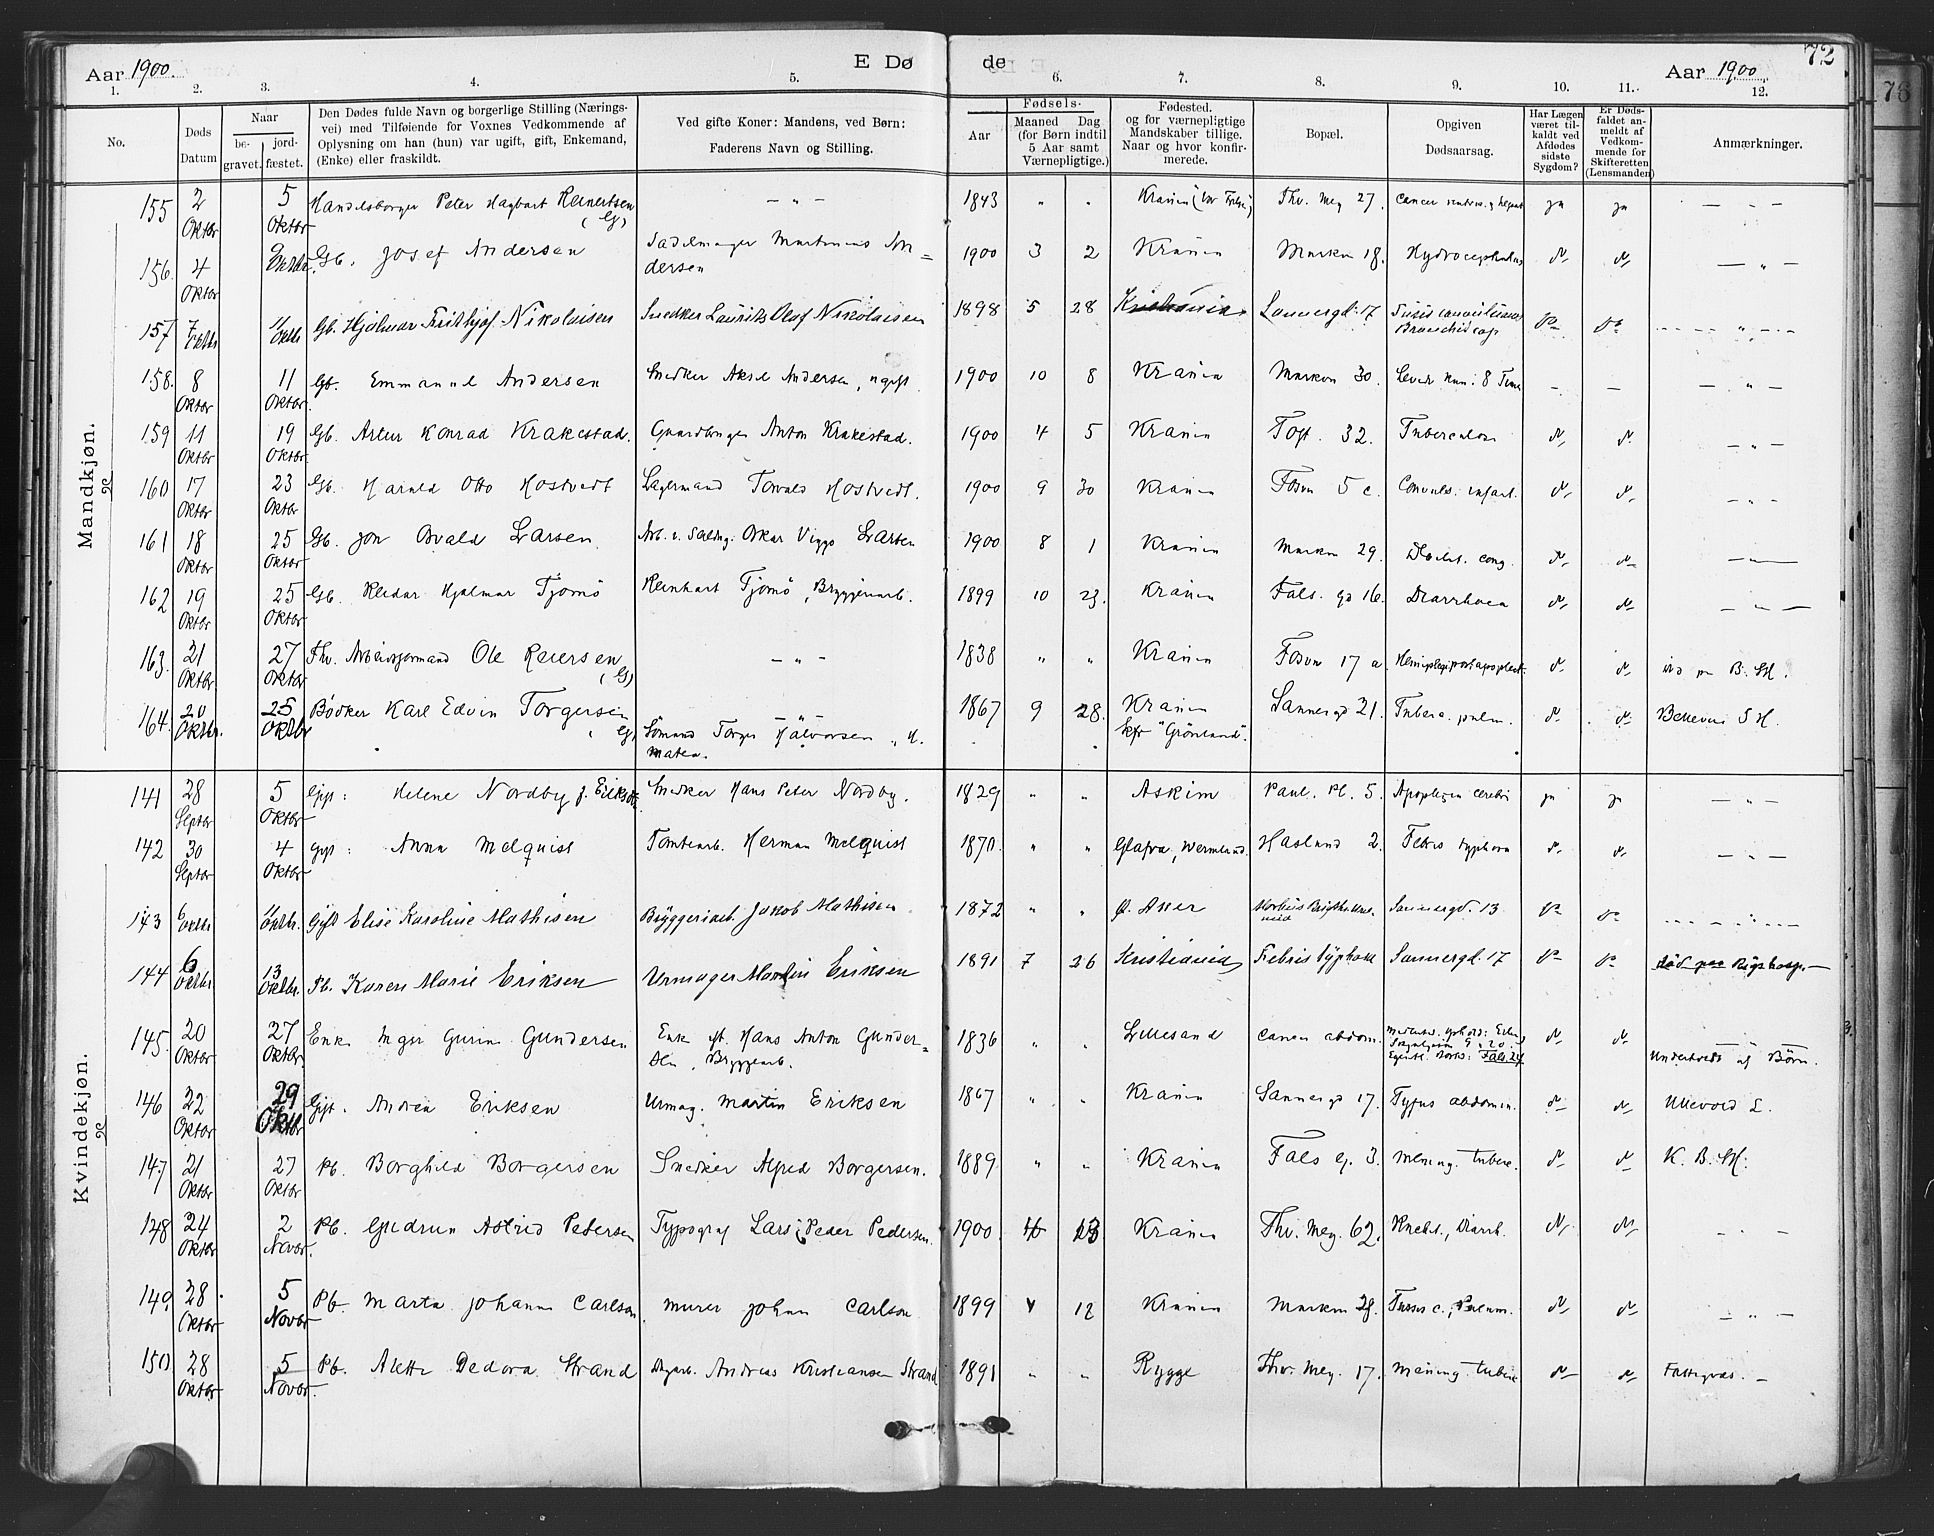 Aar 1900. E Dø de Aar 1900. 72
76
1. 2. 3. 4. 5. 6. 7. 8. 9. 10. 11. 12.
No. Døds Datum Naar be-gravet. jord-fæstet.
Den Dødes fulde Navn og borgerlige Stilling (Nærings-
vei) med Tilføiende for Voxnes Vedkommende af
Oplysning om han (hun) var ugift, gift, Enkemand,
(Enke) eller fraskildt.
Ved gifte Koner: Mandens, ved Børn:
Faderens Navn og Stilling.
Fødsels-
Aar Maaned Dag
(for Børn indtil
5 Aar samt
Værnepligtige.)
Fødested.
og for værnepligtige
Mandskaber tillige.
Naar og hvor konfir-
merede.
Bopæl.
Opgiven
Dødsaarsag.
Har Lægen
været til-
kaldt ved
Afdødes
sidste
Sygdom?
Er Døds-
faldet an-
meldt af
Vedkom-
mende for
Skifteretten
(Lensmanden)
Anmærkninger.
Mandkjøn.
155 2 Oktbr 5 Oktbr Handelsborger Peter Hagbart Reinertsen (G) — „ — 1843 „ „ Krania Thv. Mey 27. Cancer ja ja — „ —
156. 4 Oktbr Oktbr. Gb. Josef Andersen Sadelmager Martinius An=
dersen 1900 3 2 Krania Marken 18. Hydrocephalus d. d. — „ —
157 7 Oktbr 11 Oktbr Gb. Hjalmar Frithjof Nikolaisen Snedker Laurits Olaf Nikolaisen 1898 5 28 Kristiania Sannergd. 17 — „ —
158. 8 Oktbr 11 Oktbr. Gb. Emmanuel Andersen Snedker Aksel Andersen, ugift 1900 10 8 Krania Marken 30. Levede kun: 8 Time — — — „ —
159 11 Oktbr 19 Oktbr Gb. Artur Konrad Krakestad. Gaardbruger Anton Krakestad. 1900 4 5 Krania Toft. 32. Tuberculose d. d. — „ —
160 17 Oktbr 23 Oktbr Gb. Harald Otto Hostvedt Lagermand Torvald Hostvedt. 1900 9 30 Krania Fosvn 5 c. Convuls. infant. d. d. — „ —
161 18 Oktbr 25 Oktbr Gb. Jon Osvald Larsen. Arb. v. Seildug. Oskar Viggo Larsen 1900 8 1 Krania Marken 29. cong. d. d. —
162 19 Oktbr 25 Oktbr Gb. Reidar Hjalmar Tjomö Reinhart Tjomö, Bryggeriarb. 1899 10 23. Krania Fals. gd 16. Diarrhoea d. d. — „ —
163. 21 Oktbr 27 Oktbr Fhv. Arbeidsformand Ole Reiersen (G) — „ — 1838 „ „ Krania Fosvn 17 a. d. d. B. SH.
164. 20 Oktbr. 25 Oktbr Bödker Karl Edvin Torgersen (G) — „ —
Sömand Torger Halvorsen 1867 9 28. Krania
"Grönland". Sannergd 21. Tuberc. pulm. d. d. Bellevue S H.
Kvindekjøn.
141 28 Septbr 5 Oktbr Gift: Helene Nordby f. Eriksen Snedker Hans Peter Nordby. 1829 „ „ Askim Paul. Pl. 5. Apoplexia cerebri ja ja — „ —
142 30 Septbr 4 Oktbr Gift: Anna Melquist Tomtearb. Herman Melquist 1870. „ „ Glafva, Wermland. Haslund 2. Febris typhoea d. d. — „ —
143 6 Oktbr 11 Oktbr. Gift Elise Karoline Mathisen Bryggeriarb. Jakob Mathisen 1872 „ „ Ø. Aker Sannergd. 13 — „ —
144 6 Oktbr 13 Oktbr. Pb. Karen Marie Eriksen Urmager Martin Eriksen 1891 7 26 Kristiania Febris typhoea Sannergd. 17 død paa Rigshosp.
145. 20 Oktbr 27 Oktbr Enke Gurine Gundersen Enk. eft. Hans Anton Gunder=
sen, Bryggearb. 1836 „ „ Lillesand Cancer abdom. d. d. Underholdt af Börn.
146 22 Oktbr 29 Oktbr Gift. Andrea Eriksen Urmag. Martin Eriksen 1867 „ „ Krania Sannergd 17. Tyfus abdomin. d. d. Ullevold L.
147 21 Oktbr 27 Oktbr Pb. Borghild Borgersen Snedker Alfred Borgersen. 1889 „ „ Krania Fals g. 3. Mening. tuberc. d. d. K. B. SH.
148 24 Oktbr 2 Novbr. Pb. Gudrun Astrid Pedersen Typograf Lars Peder Pedersen. 1900 Krania Thv. Mey. 62. Diarrh. d. d. — „ —
149 28 Oktbr 5 Novbr Pb. Marta Johanne Carlson. Murer Johan Carlson 1899 4 12 Krania Marken 28. Tussis c., Pneum. d. d. — „ —
150 28 Oktbr 5 Novbr. Pb. Alette Dedora Strand Dagarb. Andreas Kristiansen Strand 1891 „ „ Rygge Thv. Mey. 17. Mening. tuberc d. d. Fattigvæs. —